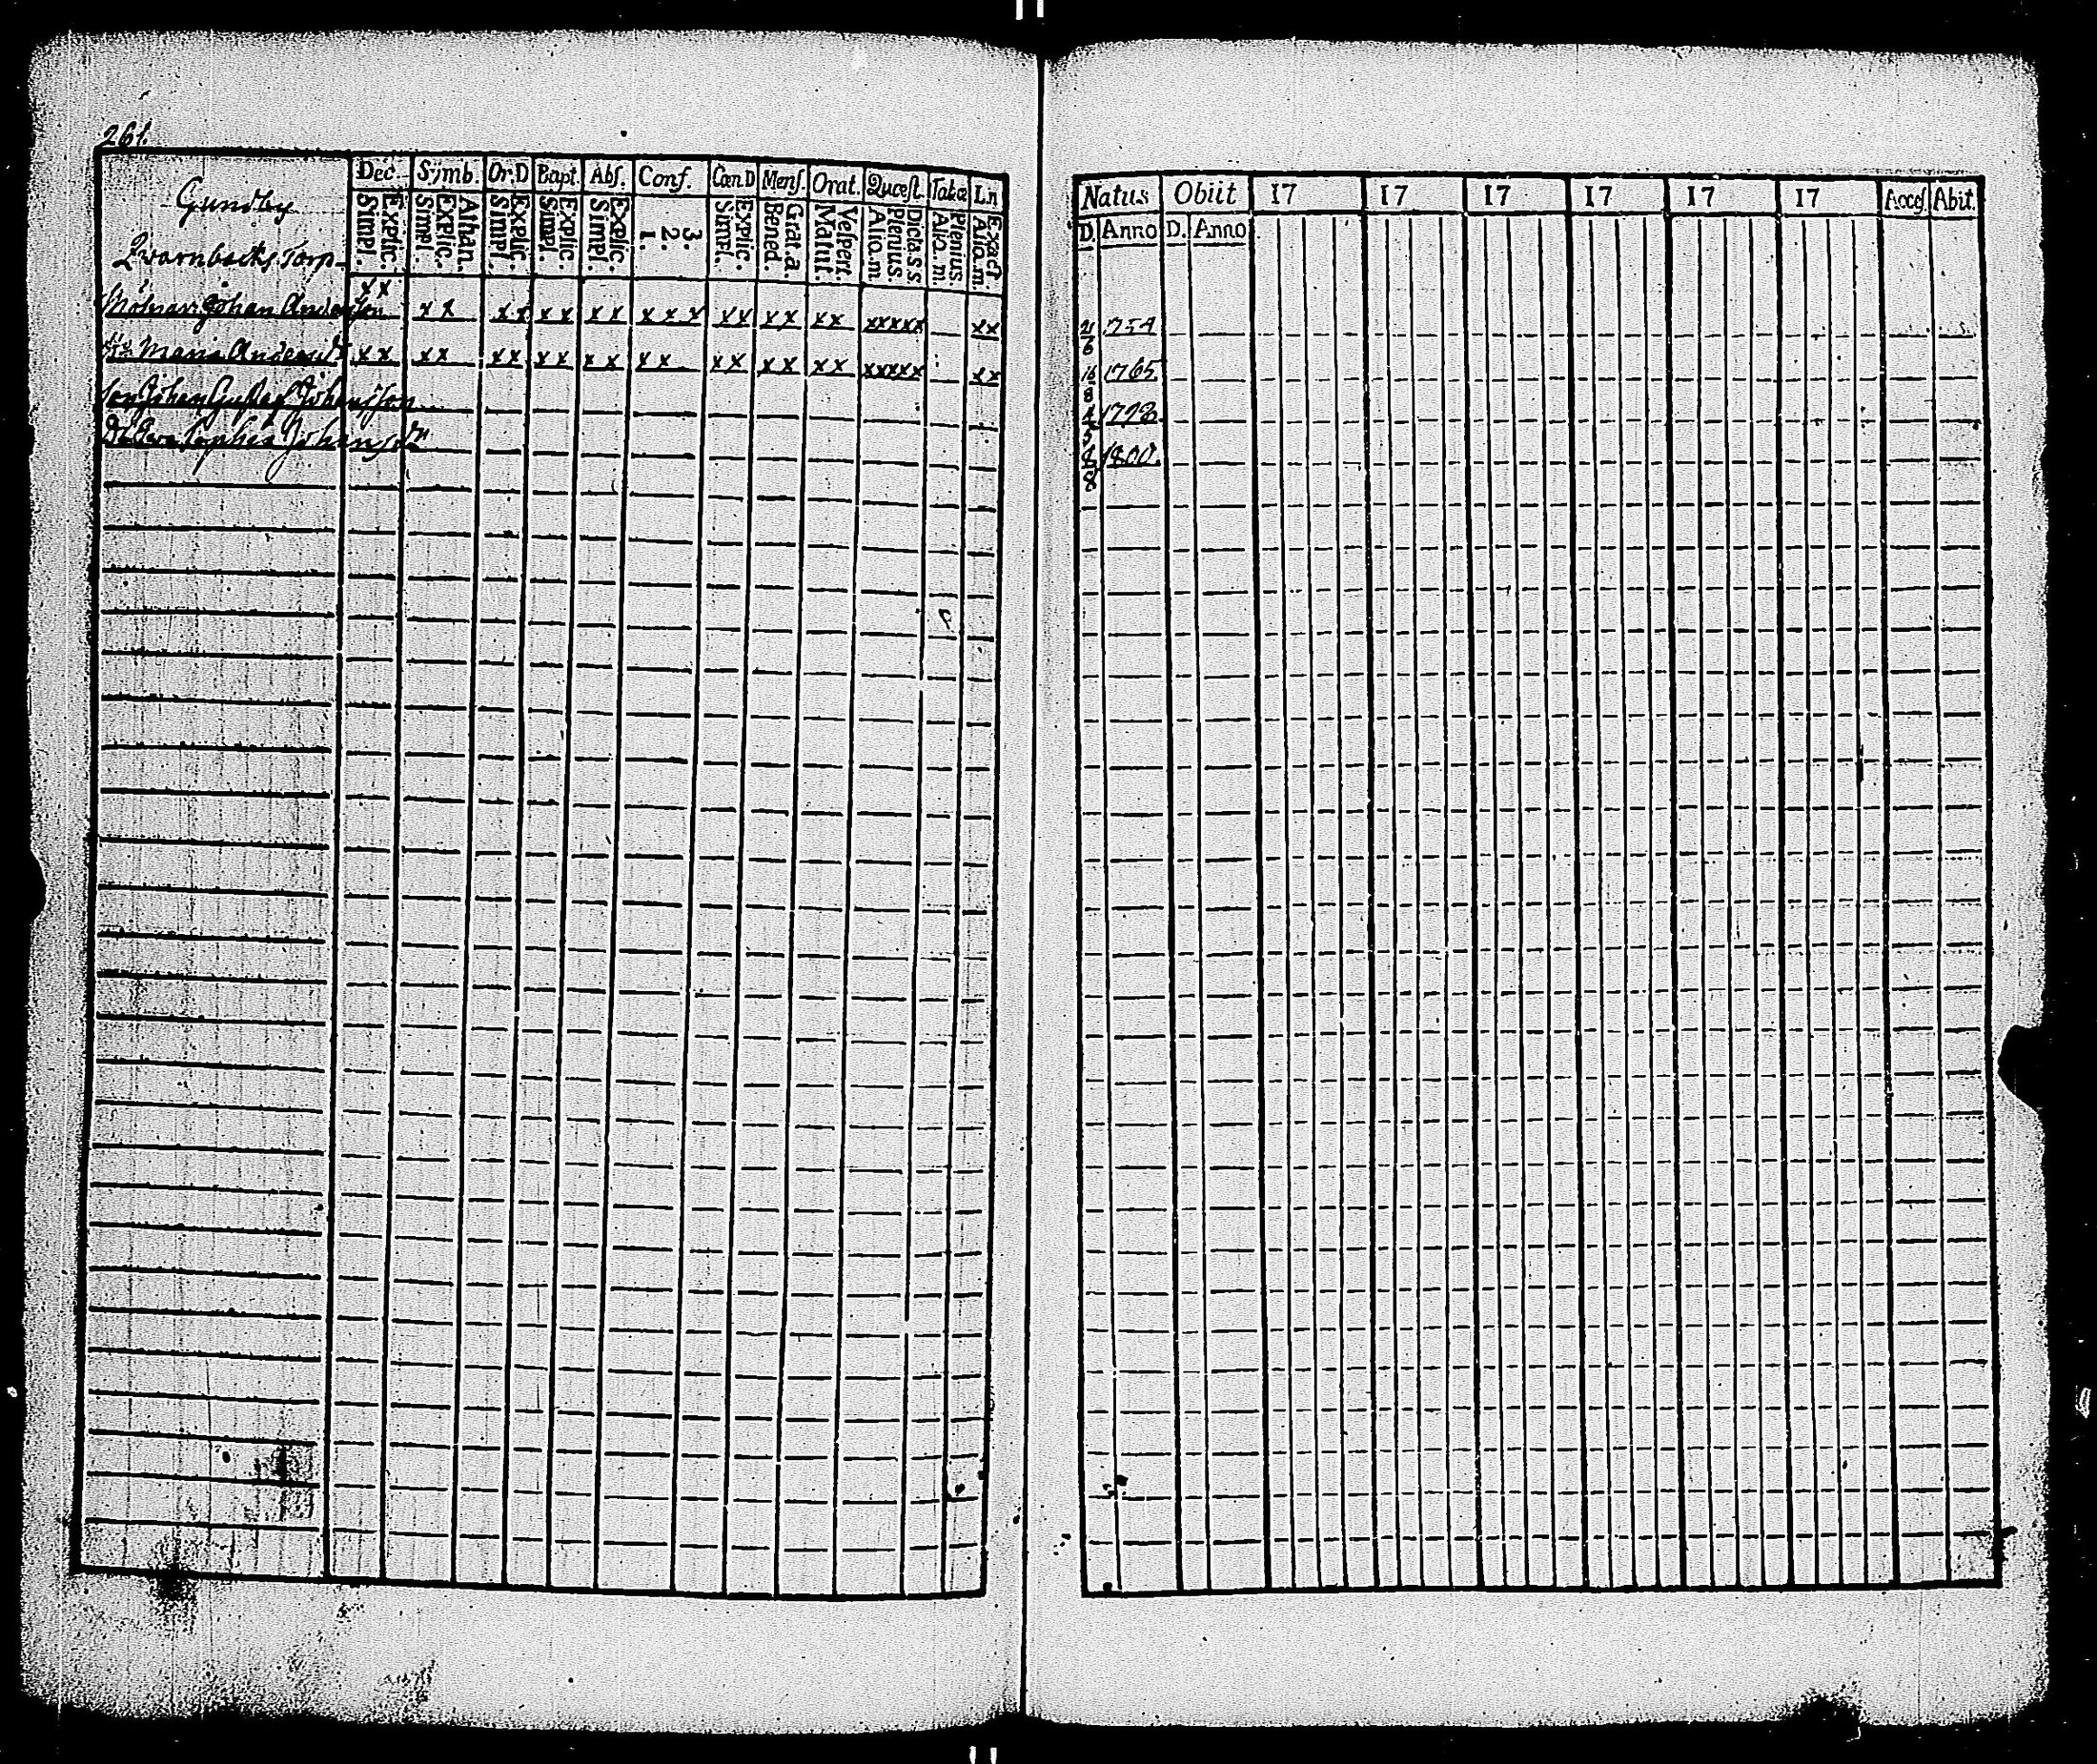 261.
Dec. Sÿmb. Or.D Bapt. Abs. Conf. Cœn D Mens. Orat. Quœst. Tabœ Ln
Gundby
Explic. Simpl. Athan. Explic. Simpl. Explic. Simpl. Explic. Simpl. Explic. Simpl. 3. 2. 1. Explic. Simpl. Grat.a Bened. Vespert. Matut. Dicta s s Plenius. Alio. m. Plenius. Alio. m. Exact Alio. m.
Qvarnbacks Torp
Mölnar. Johan Andersson x x x x x x x x x x x x x x x x x x x xxxxx xx
Maria Andersdr x x x x x x x x x x x x x x x x x x xxxxx xx
son Johan Gustaf Johansson
Dr Eva Sophia Johansdr
Natus Obiit 17 17 17 17 17 17 Acces. Abit.
D. Anno D. Anno
6 1754
16 8 1765
4 5 1798
8 1800.